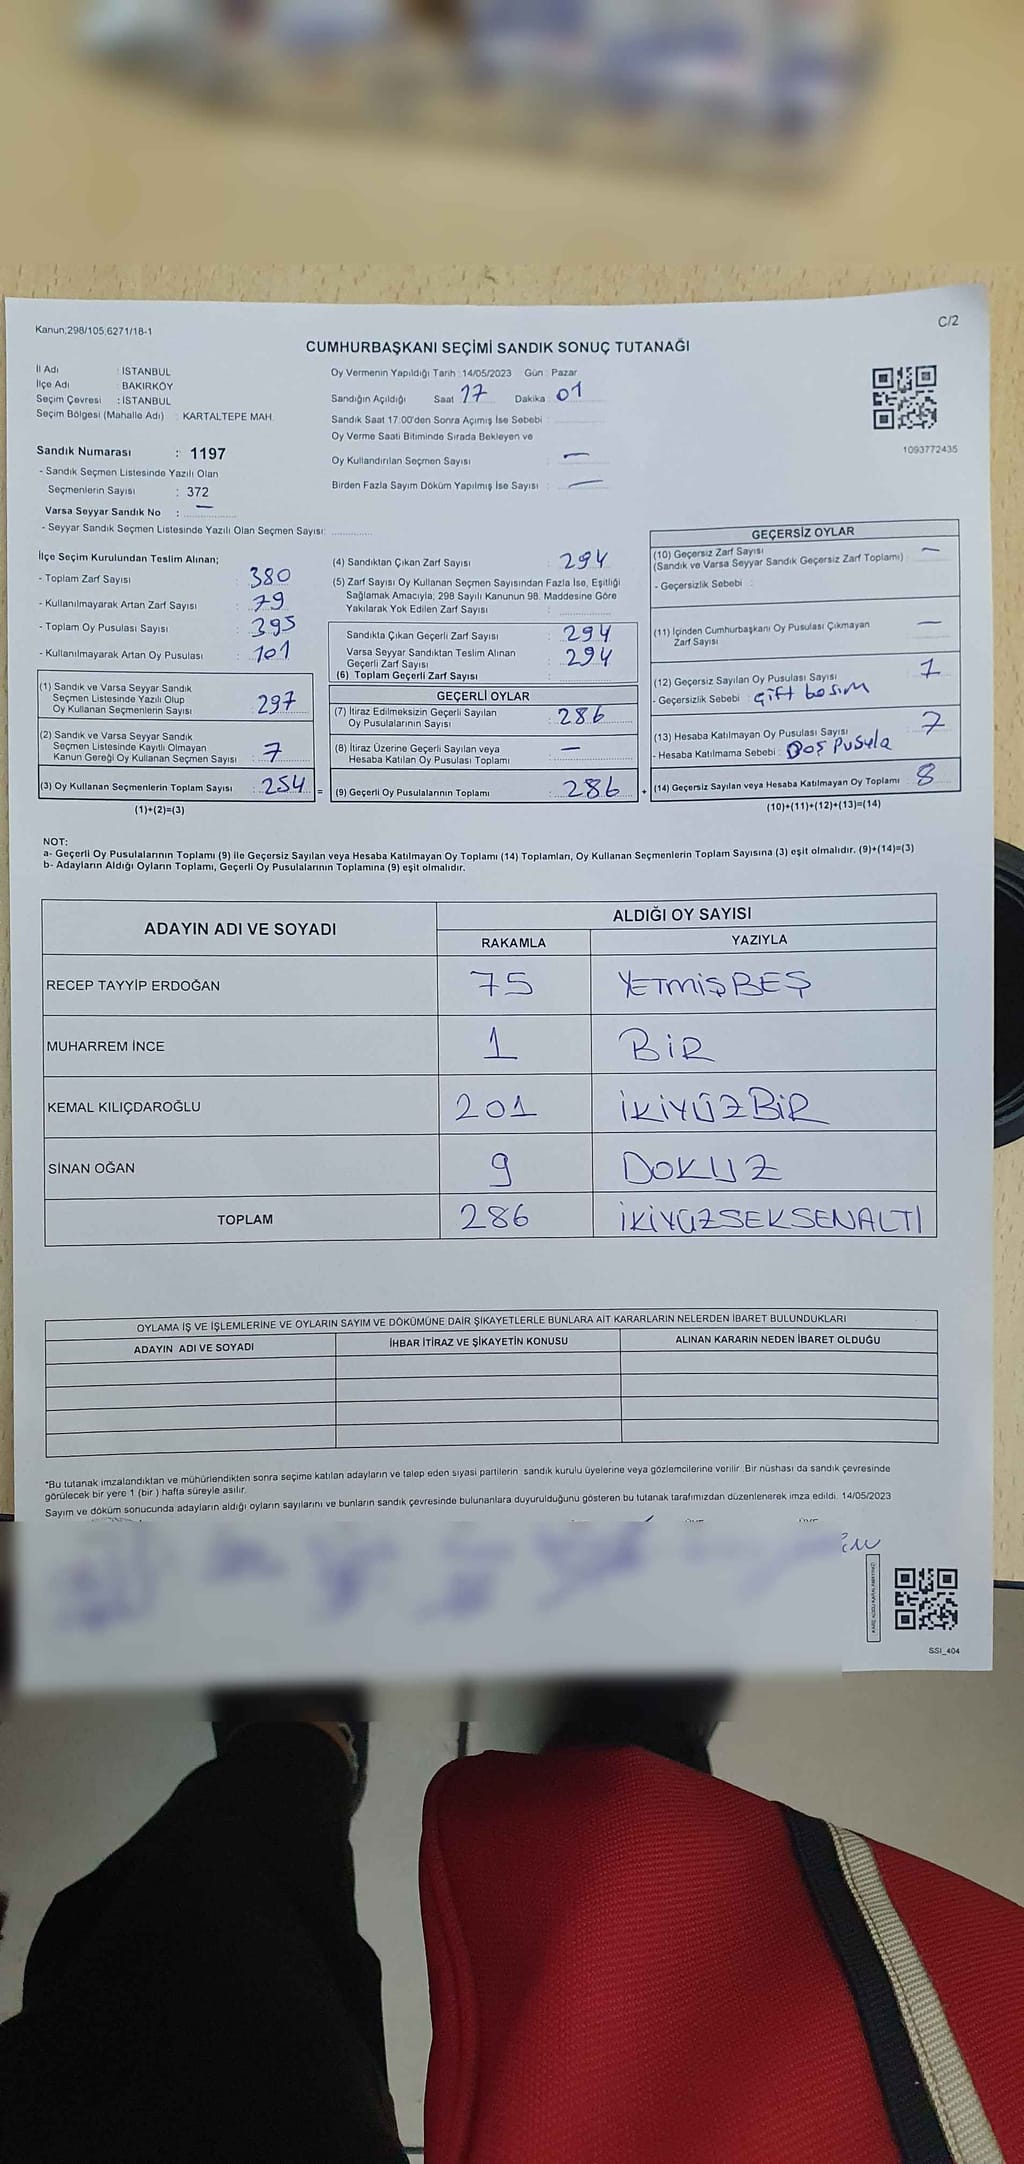 Kanun;298/105,6271/18-1
C/2
CUMHURBAŞKANI SEÇİMİ SANDIK SONUÇ TUTANAĞI
İl Adı : İSTANBUL
İlçe Adı : BAKIRKÖY
Seçim Çevresi : İSTANBUL
Seçim Bölgesi (Mahalle Adı) : KARTALTEPE MAH.
Oy Vermenin Yapıldığı Tarih : 14/05/2023 Gün : Pazar
Sandığın Açıldığı Saat 17 Dakika 01
Sandık Saat 17:00'den Sonra Açımış İse Sebebi :
Oy Verme Saati Bitiminde Sırada Bekleyen ve
Oy Kullandırılan Seçmen Sayısı : —
Birden Fazla Sayım Döküm Yapılmış İse Sayısı : —
1093772435
Sandık Numarası : 1197
- Sandık Seçmen Listesinde Yazılı Olan
Seçmenlerin Sayısı : 372
Varsa Seyyar Sandık No : —
- Seyyar Sandık Seçmen Listesinde Yazılı Olan Seçmen Sayısı:
İlçe Seçim Kurulundan Teslim Alınan;
- Toplam Zarf Sayısı : 380
- Kullanılmayarak Artan Zarf Sayısı : 79
- Toplam Oy Pusulası Sayısı : 395
- Kullanılmayarak Artan Oy Pusulası : 101
(1) Sandık ve Varsa Seyyar Sandık
Seçmen Listesinde Yazılı Olup
Oy Kullanan Seçmenlerin Sayısı : 297
(2) Sandık ve Varsa Seyyar Sandık
Seçmen Listesinde Kayıtlı Olmayan
Kanun Gereği Oy Kullanan Seçmen Sayısı : 7
(3) Oy Kullanan Seçmenlerin Toplam Sayısı : 254 =
(1)+(2)=(3)
(4) Sandıktan Çıkan Zarf Sayısı : 294
(5) Zarf Sayısı Oy Kullanan Seçmen Sayısından Fazla İse, Eşitliği
Sağlamak Amacıyla; 298 Sayılı Kanunun 98. Maddesine Göre
Yakılarak Yok Edilen Zarf Sayısı :
Sandıkta Çıkan Geçerli Zarf Sayısı : 294
Varsa Seyyar Sandıktan Teslim Alınan
Geçerli Zarf Sayısı : 294
(6) Toplam Geçerli Zarf Sayısı :
GEÇERLİ OYLAR
(7) İtiraz Edilmeksizin Geçerli Sayılan
Oy Pusulalarının Sayısı : 286
(8) İtiraz Üzerine Geçerli Sayılan veya
Hesaba Katılan Oy Pusulası Toplamı : —
(9) Geçerli Oy Pusulalarının Toplamı : 286 +
GEÇERSİZ OYLAR
(10) Geçersiz Zarf Sayısı
(Sandık ve Varsa Seyyar Sandık Geçersiz Zarf Toplamı) : —
- Geçersizlik Sebebi :
(11) İçinden Cumhurbaşkanı Oy Pusulası Çıkmayan
Zarf Sayısı : —
(12) Geçersiz Sayılan Oy Pusulası Sayısı : 1
- Geçersizlik Sebebi : çift basım
(13) Hesaba Katılmayan Oy Pusulası Sayısı : 7
- Hesaba Katılmama Sebebi : Boş Pusula
(14) Geçersiz Sayılan veya Hesaba Katılmayan Oy Toplamı : 8
(10)+(11)+(12)+(13)=(14)
NOT:
a- Geçerli Oy Pusulalarının Toplamı (9) ile Geçersiz Sayılan veya Hesaba Katılmayan Oy Toplamı (14) Toplamları, Oy Kullanan Seçmenlerin Toplam Sayısına (3) eşit olmalıdır. (9)+(14)=(3)
b- Adayların Aldığı Oyların Toplamı, Geçerli Oy Pusulalarının Toplamına (9) eşit olmalıdır.
ADAYIN ADI VE SOYADI ALDIĞI OY SAYISI
RAKAMLA YAZIYLA
RECEP TAYYİP ERDOĞAN 75 YETMİŞBEŞ
MUHARREM İNCE 1 BİR
KEMAL KILIÇDAROĞLU 201 İKİYÜZBİR
SİNAN OĞAN 9 DOKUZ
TOPLAM 286 İKİYÜZSEKSENALTI
OYLAMA İŞ VE İŞLEMLERİNE VE OYLARIN SAYIM VE DÖKÜMÜNE DAİR ŞİKAYETLERLE BUNLARA AİT KARARLARIN NELERDEN İBARET BULUNDUKLARI
ADAYIN ADI VE SOYADI İHBAR İTİRAZ VE ŞİKAYETİN KONUSU ALINAN KARARIN NEDEN İBARET OLDUĞU
*Bu tutanak imzalandıktan ve mühürlendikten sonra seçime katılan adayların ve talep eden siyasi partilerin sandık kurulu üyelerine veya gözlemcilerine verilir .Bir nüshası da sandık çevresinde
görülecek bir yere 1 (bir ) hafta süreyle asılır.
Sayım ve döküm sonucunda adayların aldığı oyların sayılarını ve bunların sandık çevresinde bulunanlara duyurulduğunu gösteren bu tutanak tarafımızdan düzenlenerek imza edildi. 14/05/2023
SSI_404